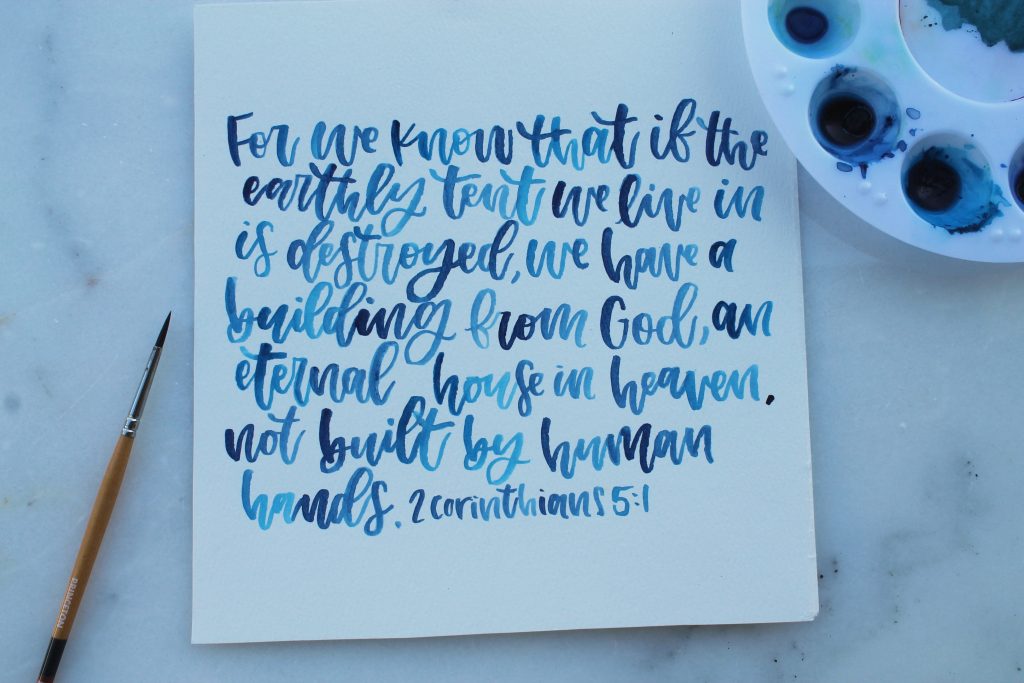 For we know that if the
earthly tent we live in
is destroyed, we have a
building from God, an
eternal house in heaven.
not built by human
hands. 2 corinthians 5:1
PRINCETON